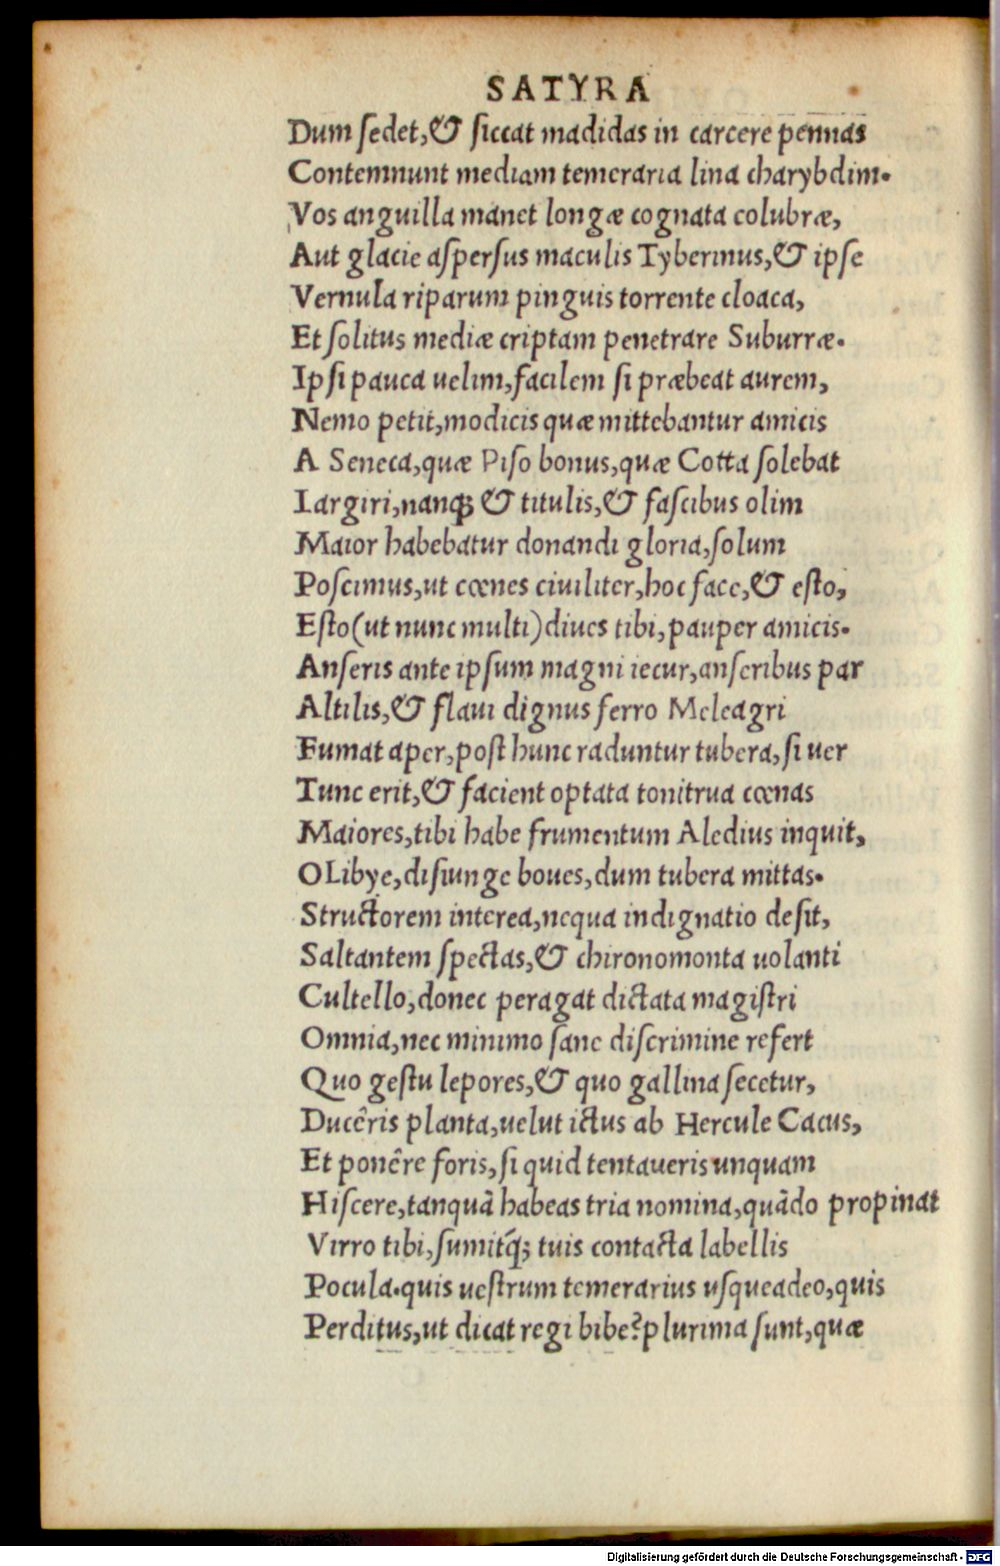 SATYRA
Dum ſedet,& ſiccat madidas in carcere pennas
Contemnunt mediam temeraria lina charybdim.
Vos anguilla manet longæ cognata colubræ,
Aut glacie aſperſus maculis Tyberinus,& ipſe
Vernula riparum pinguis torrente cloaca,
Et ſolitus mediæ criptam penetrare Suburræ.
Ipſi pauca uelim,facilem ſi præbeat aurem,
Nemo petit,modicis quæ mittebantur amicis
A Seneca,quæ Piſo bonus,quæ Cotta ſolebat
Largiri,nanq; & titulis,& faſcibus olim
Maior habebatur donandi gloria,ſolum
Poſcimus,ut cœnes ciuiliter,hoc face,& eſto,
Eſto(ut nunc multi)diues tibi,pauper amicis.
Anſeris ante ipſum magni iecur,anſeribus par
Altilis,& flaui dignus ferro Meleagri
Fumat aper,poſt hunc raduntur tubera,ſi uer
Tunc erit,& facient optata tonitrua cœnas
Maiores,tibi habe frumentum Aledius inquit,
O Libye,diſiunge boues,dum tubera mittas.
Structorem interea,nequa indignatio deſit,
Saltantem ſpectas,& chironomonta uolanti
Cultello,donec peragat dictata magiſtri
Omnia,nec minimo ſane diſcrimine refert
Quo geſtu lepores,& quo gallina ſecetur,
Ducêris planta,uelut ictus ab Hercule Cacus,
Et ponêre foris,ſi quid tentaueris unquam
Hiſcere,tanquã habeas tria nomina,quãdo propinat
Virro tibi,ſumitq́; tuis contacta labellis
Pocula.quis ueſtrum temerarius uſqueadeo,quis
Perditus,ut dicat regi bibe?plurima ſunt,quæ
Digitalisierung gefördert durch die Deutsche Forschungsgemeinschaft - DFG